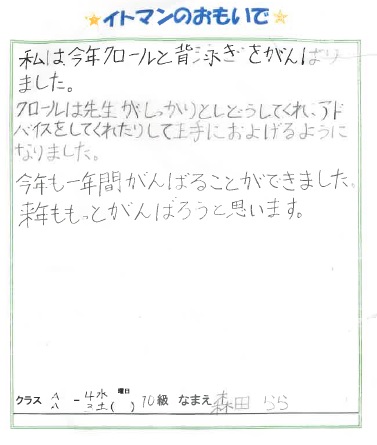 イトマンのおもいで
私は今年クロールと背泳ぎをがんばり
ました。
クロールは先生がしっかりとしどうしてくれ、アド
バイスをしてくれたりして王手におよげるように
なりました。
今年も一年間がんばることができました。
来年ももっとがんばろうと思います。
クラス - 4水 曜日 土( ) 10級 なまえ 森田 らら